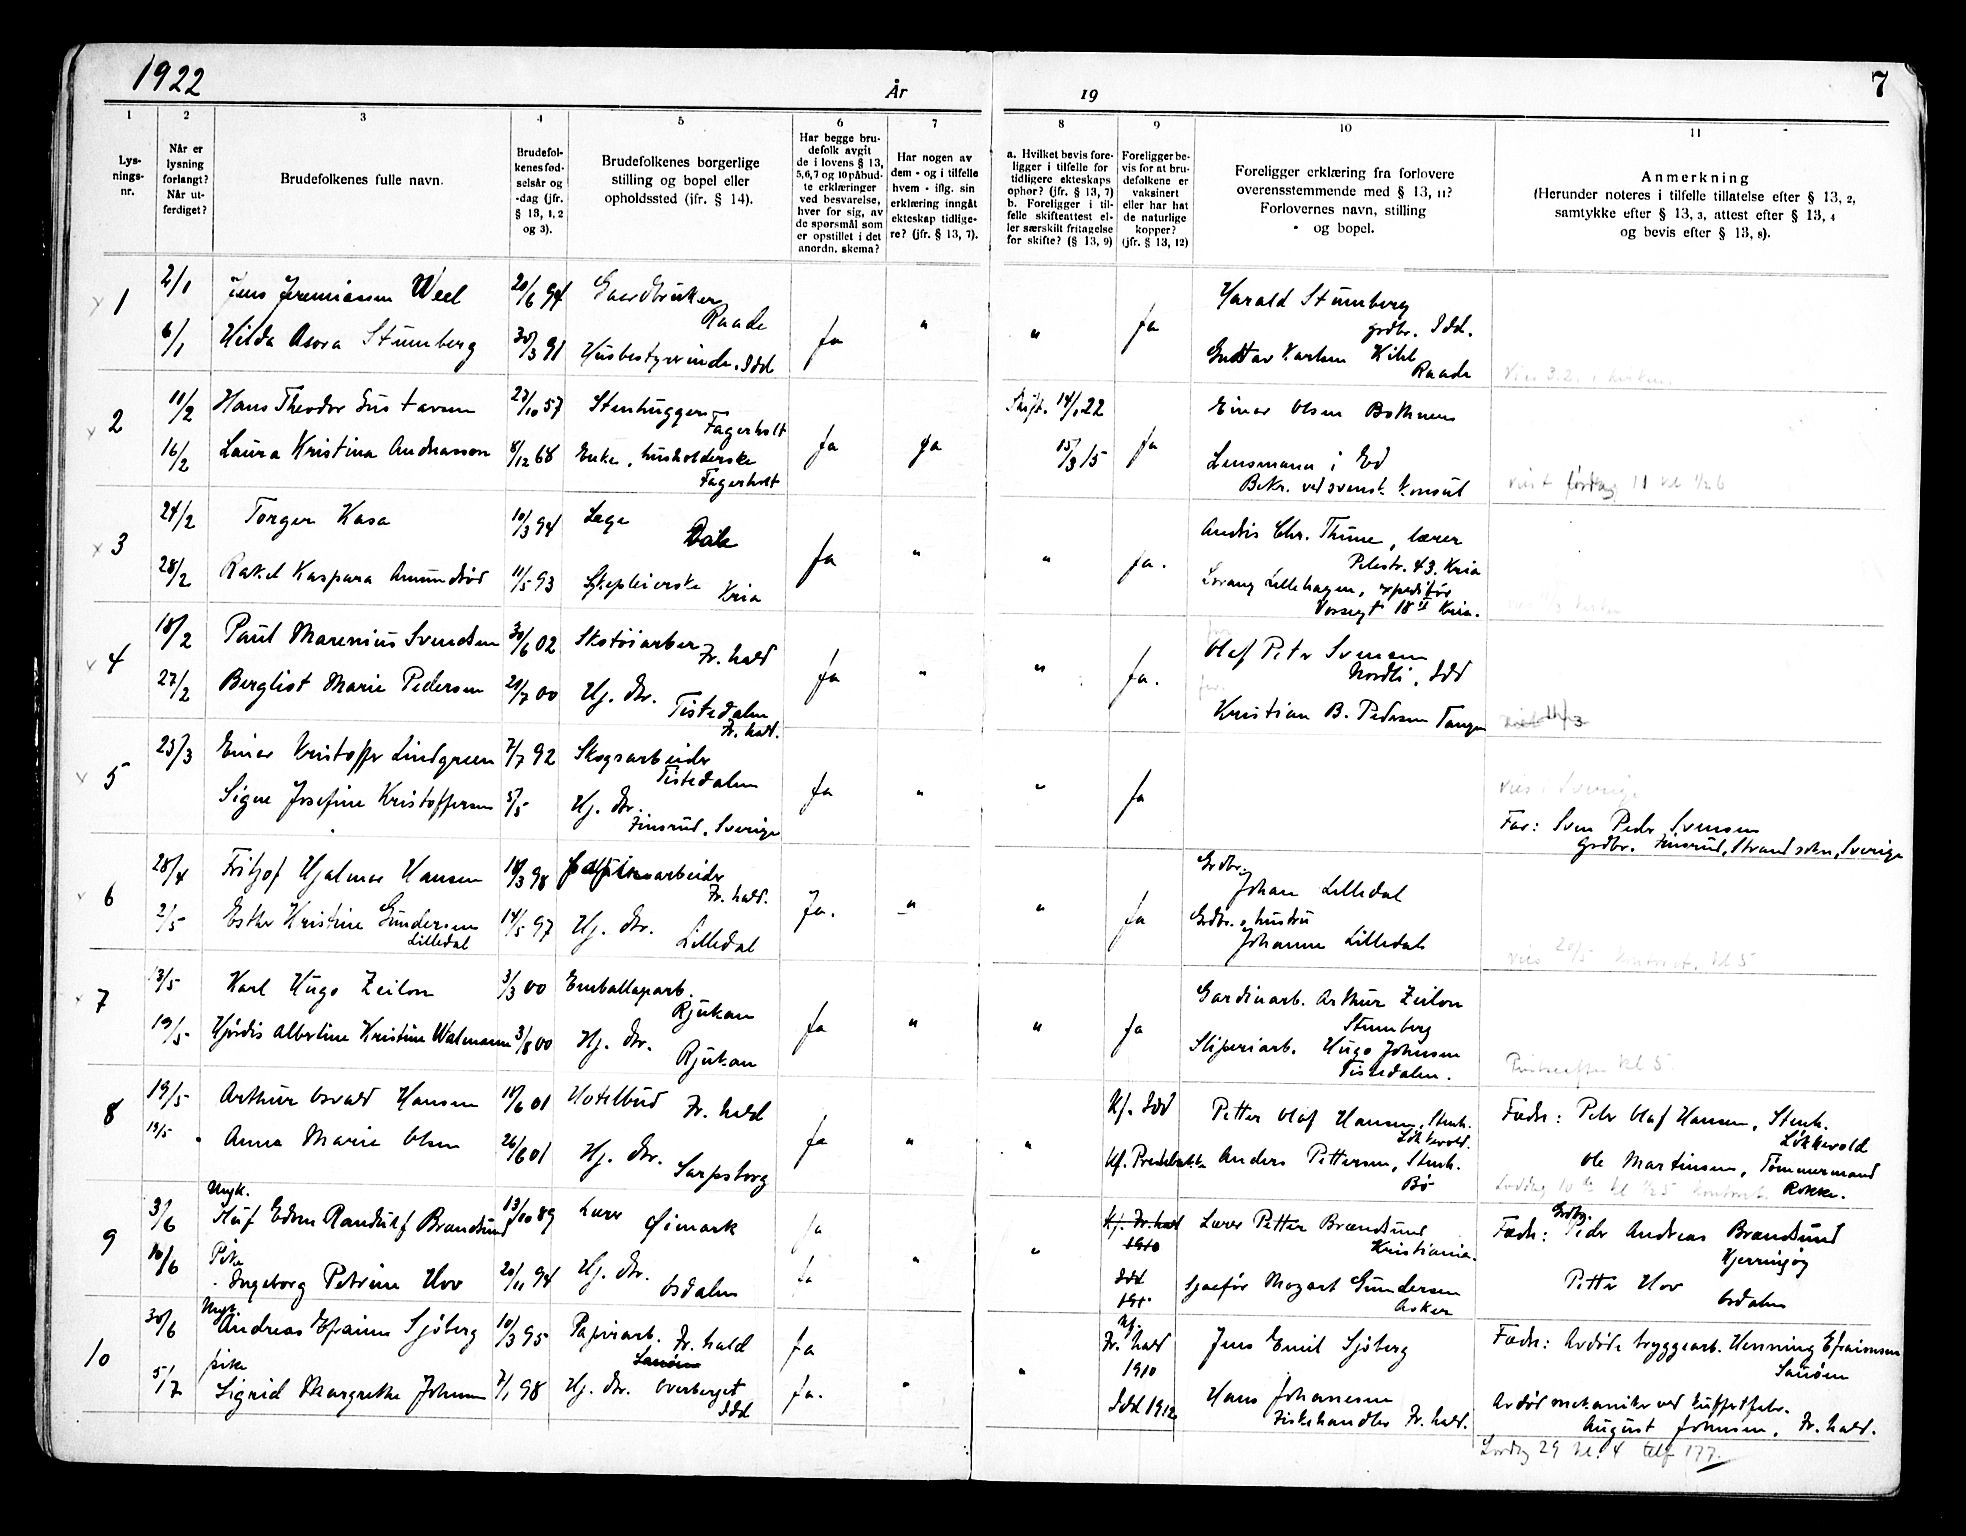 1922
År
19
7
1
2
3
4
5
6
7
8
9
10
11
Lys-
nings-
nr.
Når er
lysning
forlangt?
Når ut-
ferdiget?
Brudefolkenes fulle navn.
Brudefol-
kenes fød-
selsår og
-dag (jfr.
§ 13, 1, 2
og 3).
Brudefolkenes borgerlige
stilling og bopel eller
opholdssted (jfr. § 14).
Har begge bru-
defolk avgit
de i lovens § 13,
5,6,7 og 10 påbud-
te erklæringer
ved besvarelse,
hver for sig, av
de spørsmål som
er opstillet i det
anordn. skema?
Har nogen av
dem - og i tilfelle
hvem - iflg. sin
erklæring inngått
ekteskap tidlige-
re? (jfr. § 13, 7).
a. Hvilket bevis fore-
ligger i tilfelle for
tidligere ekteskaps
ophør? (jfr. § 13, 7)
b. Foreligger i til-
felle skifteattest el-
ler særskilt fritagelse
for skifte? (§ 13, 9)
Foreligger be-
vis for at bru-
defolkene er
vaksinert
eller har hat
de naturlige
kopper?
(jfr. § 13, 12)
Foreligger erklæring fra forlovere
overensstemmende med § 13, 11?
Forlovernes navn, stilling
og bopel.
Anmerkning
(Herunder noteres i tilfelle tillatelse efter § 13, 2,
samtykke efter § 13, 3, attest efter § 13, 4
og bevis efter § 13, 8).
x 1
2/1 Jens Jeremiassen Weel 20/6 94 Gaardbruker
Raade
Harald Stumberg
grdbr. Idd.
6/1 Hilda Asora Stumberg 30/3 91 Husbestyrerinde, Idd
ja " " ja
Gustav Karlsen Kihl
Raade
x 2
11/2 Hans Theodor Gustavsen 23/10 57 Stenhugger
Fagerholt
Skift. 14/1 22
Einar Olsen Bothner
16/2 Laura Kristina Andreasson 8/12 68 Enke, husholderske
Fagerholt
ja ja 15/3 15 ja
Lensmann i Ed
Bekr. ved svensk Konsul
x 3
24/2 Torger Kasa 10/3 94 Læge
Dale
Andris Chr. Thune, lærer
Pilestr. 43. Kria
28/2 Rakel Kaspara Amundrød 11/5 93 Sykepleierske
Kria
ja " " ja.
Lorang Lillehagen, expeditør
Vossegt 18 II Kria.
x 4
18/2 Paul Marenius Svendsen 30/6 02 Skotøiarber
Fr. hald
Olaf Peter Svensen
Nordli, Idd
27/2 Bergliot Marie Pedersen 21/7 00 Hj. dtr.
Tistedalen
Fr. hald.
ja " " ja.
Kristian B. Pedersen Tangen
x 5
23/3 Einar Kristoffer Lindgreen 7/7 92 Skogsarbeider
Tistedalen
vies i Sverige
Signe Josefine Kristoffersen 5/5 Hj. dtr.
Finsrud, Sverige
ja " " ja
Far: Sven Peder Svensen
Grdbr. Finsrud, Strand sokn, Sverige
x 6
28/4 Fritjof Hjalmar Hansen 18/3 98 Fabrikarbeider
Fr. hald.
Grdbr.
Johan Lilledal
2/5 Esther Kristine Gundersen
Lilledal
14/5 97 Hj. dtr.
Lilledal
Ja. " " ja
Grdbr. hustru
Johanne Lilledal
vies 20/5 Kontoret, kl 5
x 7
13/5 Karl Hugo Zeilon 3/3 00 Emballagearb.
Rjukan
Gardinarb. Arthur Zeilon
Stumberg
19/5 Hjørdis Albertine Kristine Walmann 3/8 00 Hj. dtr.
Rjukan
ja " " ja
Sliperiarb. Hugo Johnsen
Tistedalen.
8
19/5 Arthur Osvald Hansen 18/6 01 Hotelbud
Fr. hald
Kf. Idd
Petter Olaf Hansen, Stenh.
Løkkevold.
Fædr: Peter Olaf Hansen, Stenh.
Løkkevold
19/5 Anna Marie Olsen 26/6 01 Hj. dtr.
Sarpsborg
ja " "
Kf. Prestebakke
Anders Pettersen, Stenh.
Bø
Ole Martinsen, Tømmermand
Rokke.
9
3/6 Ungk.
Edvin Randulf Brandsund 13/10 89 Lærer
Øimark
ja
Kf. Fr. hald
1910
Lærer Petter Brændsund
Kristiania.
Fædr: Grdbr. Peder Andreas Brændsund
Kjerringøy
10/6 Pike
Ingeborg Petrine Hov 20/11 94 Hj. dtr.
Osdalen
ja " "
Idd
Sjaafør Mozart Gundersen
Asker
Petter Hov
Osdalen
10
30/6 Ungk.
Andreas Efraim Sjøberg 10/3 95 Papirarb. Fr. hald
ja
Kf.
Fr. hald
1910
Jens Emil Sjøberg
Fædr: Avdøde bryggearb. Henning Efraimsen
Sauøen
5/7 pike
Sigrid Margrethe Johnsen 7/1 98 Hj. dtr. Overberget
Idd
ja. " "
Idd 1912
Hans Johansen
Fiskehandler Fr. hald.
Avdød mekaniker ved Kuffertfabr.
August Johnsen, Fr. hald.
Lørdag 29 kl. 4 telf 177.